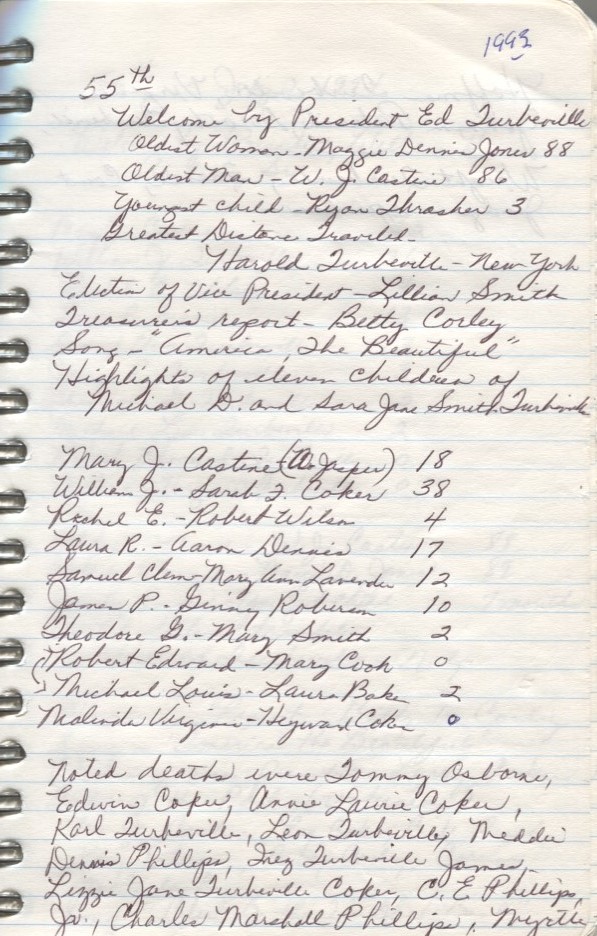 1993
55th
Welcome by President Ed Turbeville
Oldest Woman - Maggie Dennis Jones 88
Oldest Man - W. J. Castine 86
Youngest child - Ryan Thrasher 3
Greatest Distance Traveled -
Harold Turbeville - New York
Election of Vice President - Lillian Smith
Treasurer's report - Betty Corley
Song - "America, The Beautiful"
Highlights of eleven children of
Michael D. and Sara Jane Smith Turbeville
Mary J. Castine (W. Jasper) 18
William J. - Sarah F. Coker 38
Rachel E. - Robert Wilson 4
Laura R. - Aaron Dennis 17
Samuel Clem - Mary Ann Lavender 12
James P. - Ginny Roberson 10
Theodore G. - Mary Smith 2
Robert Edward - Mary Cook 0
Michael Louis - Laura Baker 2
Malinda Virginia - Heyward Coker 0
Noted deaths were Tommy Osborne,
Edwin Coker, Annie Laurie Coker,
Karl Turbeville, Leon Turbeville, Meddie
Dennis Phillips, Inez Turbeville James,
Lizzie Jane Turbeville Coker, C. E. Phillips,
Jr., Charles Marshall Phillips, Myrtle